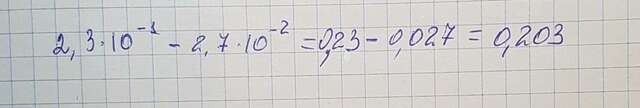 2,3·10⁻¹ − 2,7·10⁻² = 0,23 − 0,027 = 0,203